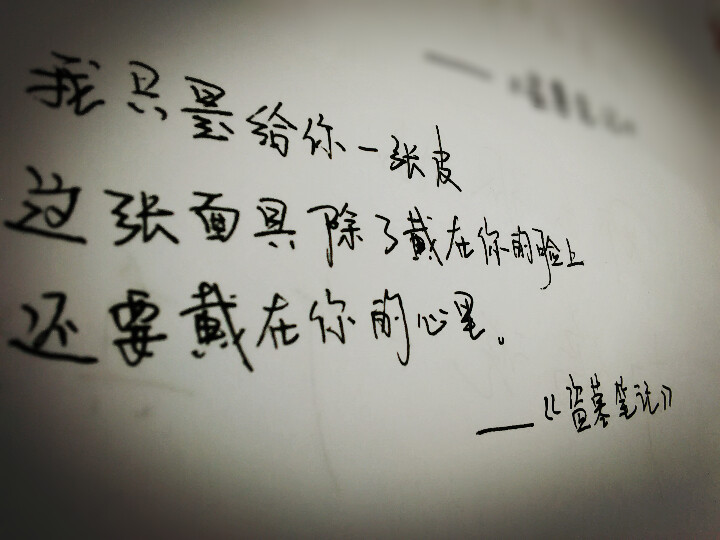 我只是给你一张皮
这张面具除了戴在你的脸上
还要戴在你的心里。
——《盗墓笔记》